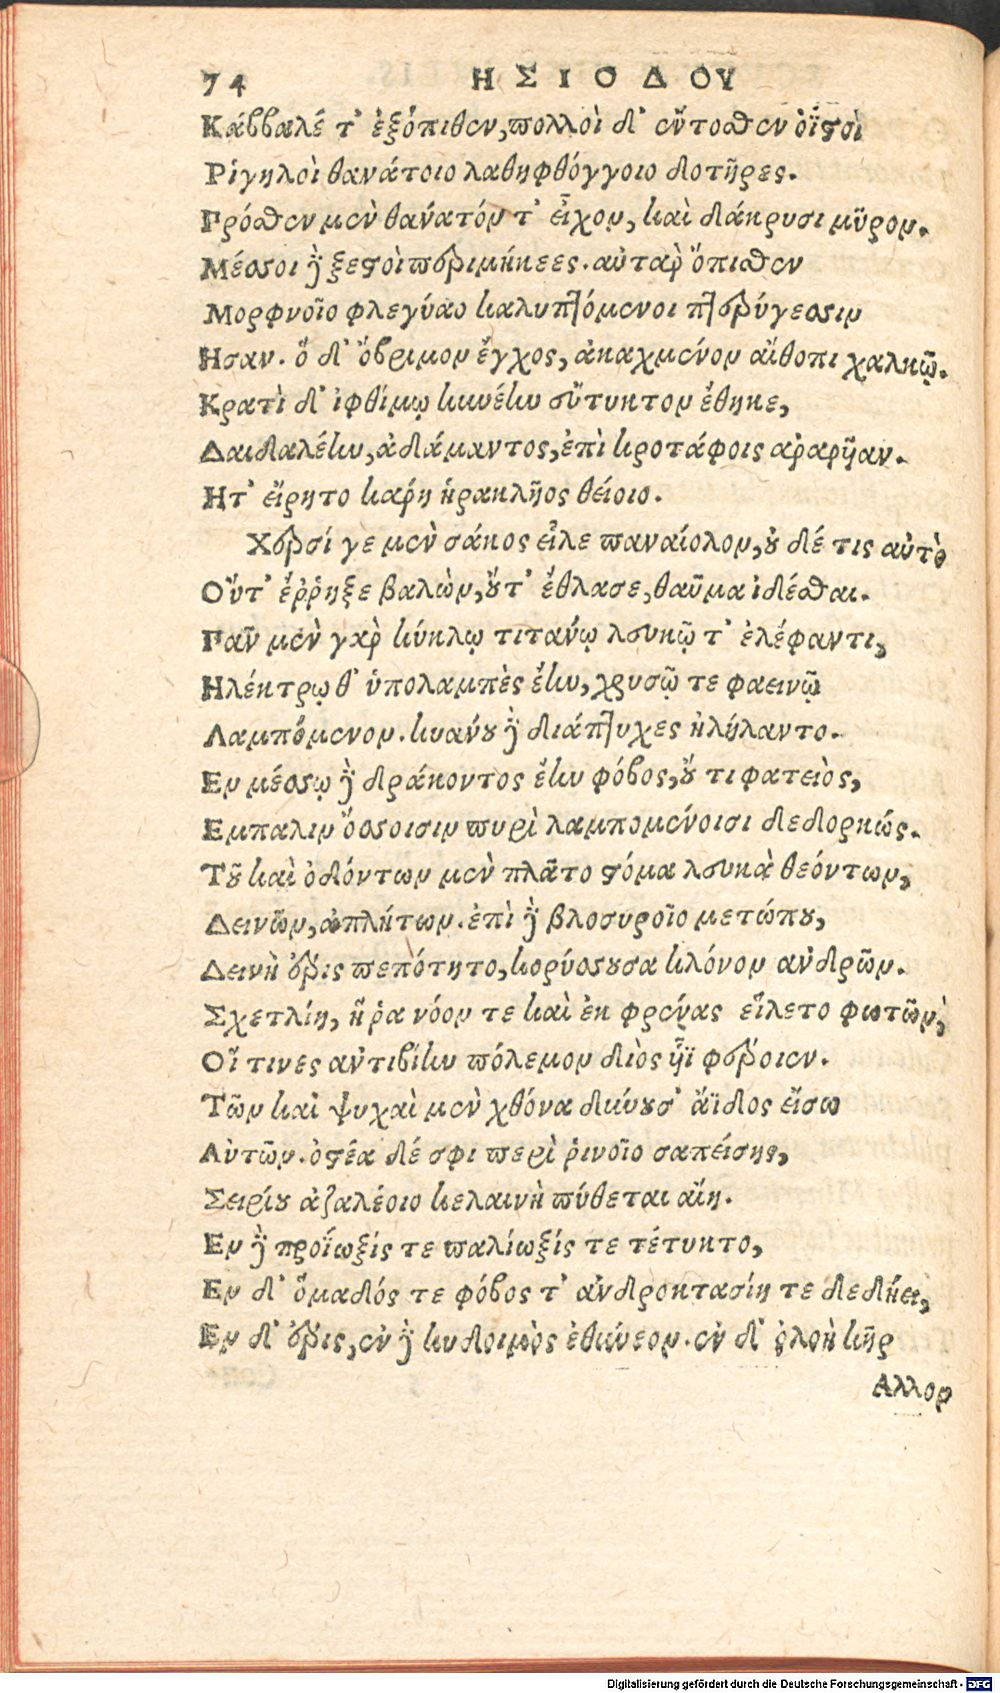 74 ΗΣΙΟΔΟΥ
Κάββαλέ τ' ἐξόπιθεν, πολλοὶ δ' ἔντοσθεν ὀϊστοὶ
Ρἱγηλοὶ θανάτοιο λαθηφθόγγοιο δοτῆρες.
Πρόσθεν μὲν θάνατόν τ' εἶχον, καὶ δάκρυσι μῦρον.
Μέσσοι δὲ ξεστοὶ περιμήκεες. αὐτὰρ ὄπισθεν
Μορφνοῖο φλεγύαο καλυπτόμενοι πτερύγεσσιν
Ησαν. ὅ δ' ὄβριμον ἔγχος, ἀκαχμένον αἴθοπι χαλκῷ.
Κρατὶ δ' ἰφθίμῳ κυνέην εὔτυκτον ἔθηκε,
Δαιδαλέην, ἀδάμαντος, ἐπὶ κροτάφοις ἀραρῆαν.
Ητ' εἴρητο κάρη ἡρακλῆος θείοιο.
Χερσί γε μὲν σάκος εἷλε παναίολον, οὐ δέ τις αὐτὸ
Οὔτ' ἔῤῥηξε βαλὼν, οὔτ' ἔθλασε, θαῦμα ἰδέσθαι.
Πᾶν μὲν γὰρ κύκλῳ τιτάνῳ λευκῷ τ' ἐλέφαντι,
Ηλέκτρῳ θ' ὑπολαμπὲς ἔην, χρυσῷ τε φαεινῷ
Λαμπόμενον. κυάνου δὲ διάπτυχες ἠλήλαντο.
Εν μέσσῳ δὲ δράκοντος ἔην φόβος, οὔ τι φατειὸς,
Εμπαλιν ὄσσοισιν πυρὶ λαμπομένοισι δεδορκώς.
Τοῦ καὶ ὀδόντων μὲν πλῆτο στόμα λευκὰ θεόντων,
Δεινῶν, ἀπλήτων. ἐπὶ δὲ βλοσυροῖο μετώπου,
Δεινὴ ἔρις πεπότητο, κορύσσουσα κλόνον ἀνδρῶν.
Σχετλίη, ἥ ῥα νόον τε καὶ ἐκ φρένας εἵλετο φωτῶν,
Οἵ τινες ἀντιβίην πόλεμον διὸς ᾗϊ φέροιεν.
Τῶν καὶ ψυχαὶ μὲν χθόνα δύνουσ' ἄϊδος εἴσω
Αὐτῶν. ὀστέα δέ σφι περὶ ῥινοῖο σαπείσης,
Σειρίου ἀζαλέοιο κελαινῇ πύθεται αἴῃ.
Εν δὲ προΐωξίς τε παλίωξίς τε τέτυκτο,
Εν δ' ὅμαδός τε φόβος τ' ἀνδροκτασίη τε δεδήει,
Εν δ' ἔρις, ἐν δὲ κυδοιμὸς ἐθύνεον. ἐν δ' ὀλοὴ κὴρ
Αλλον
Digitalisierung gefördert durch die Deutsche Forschungsgemeinschaft - DFG